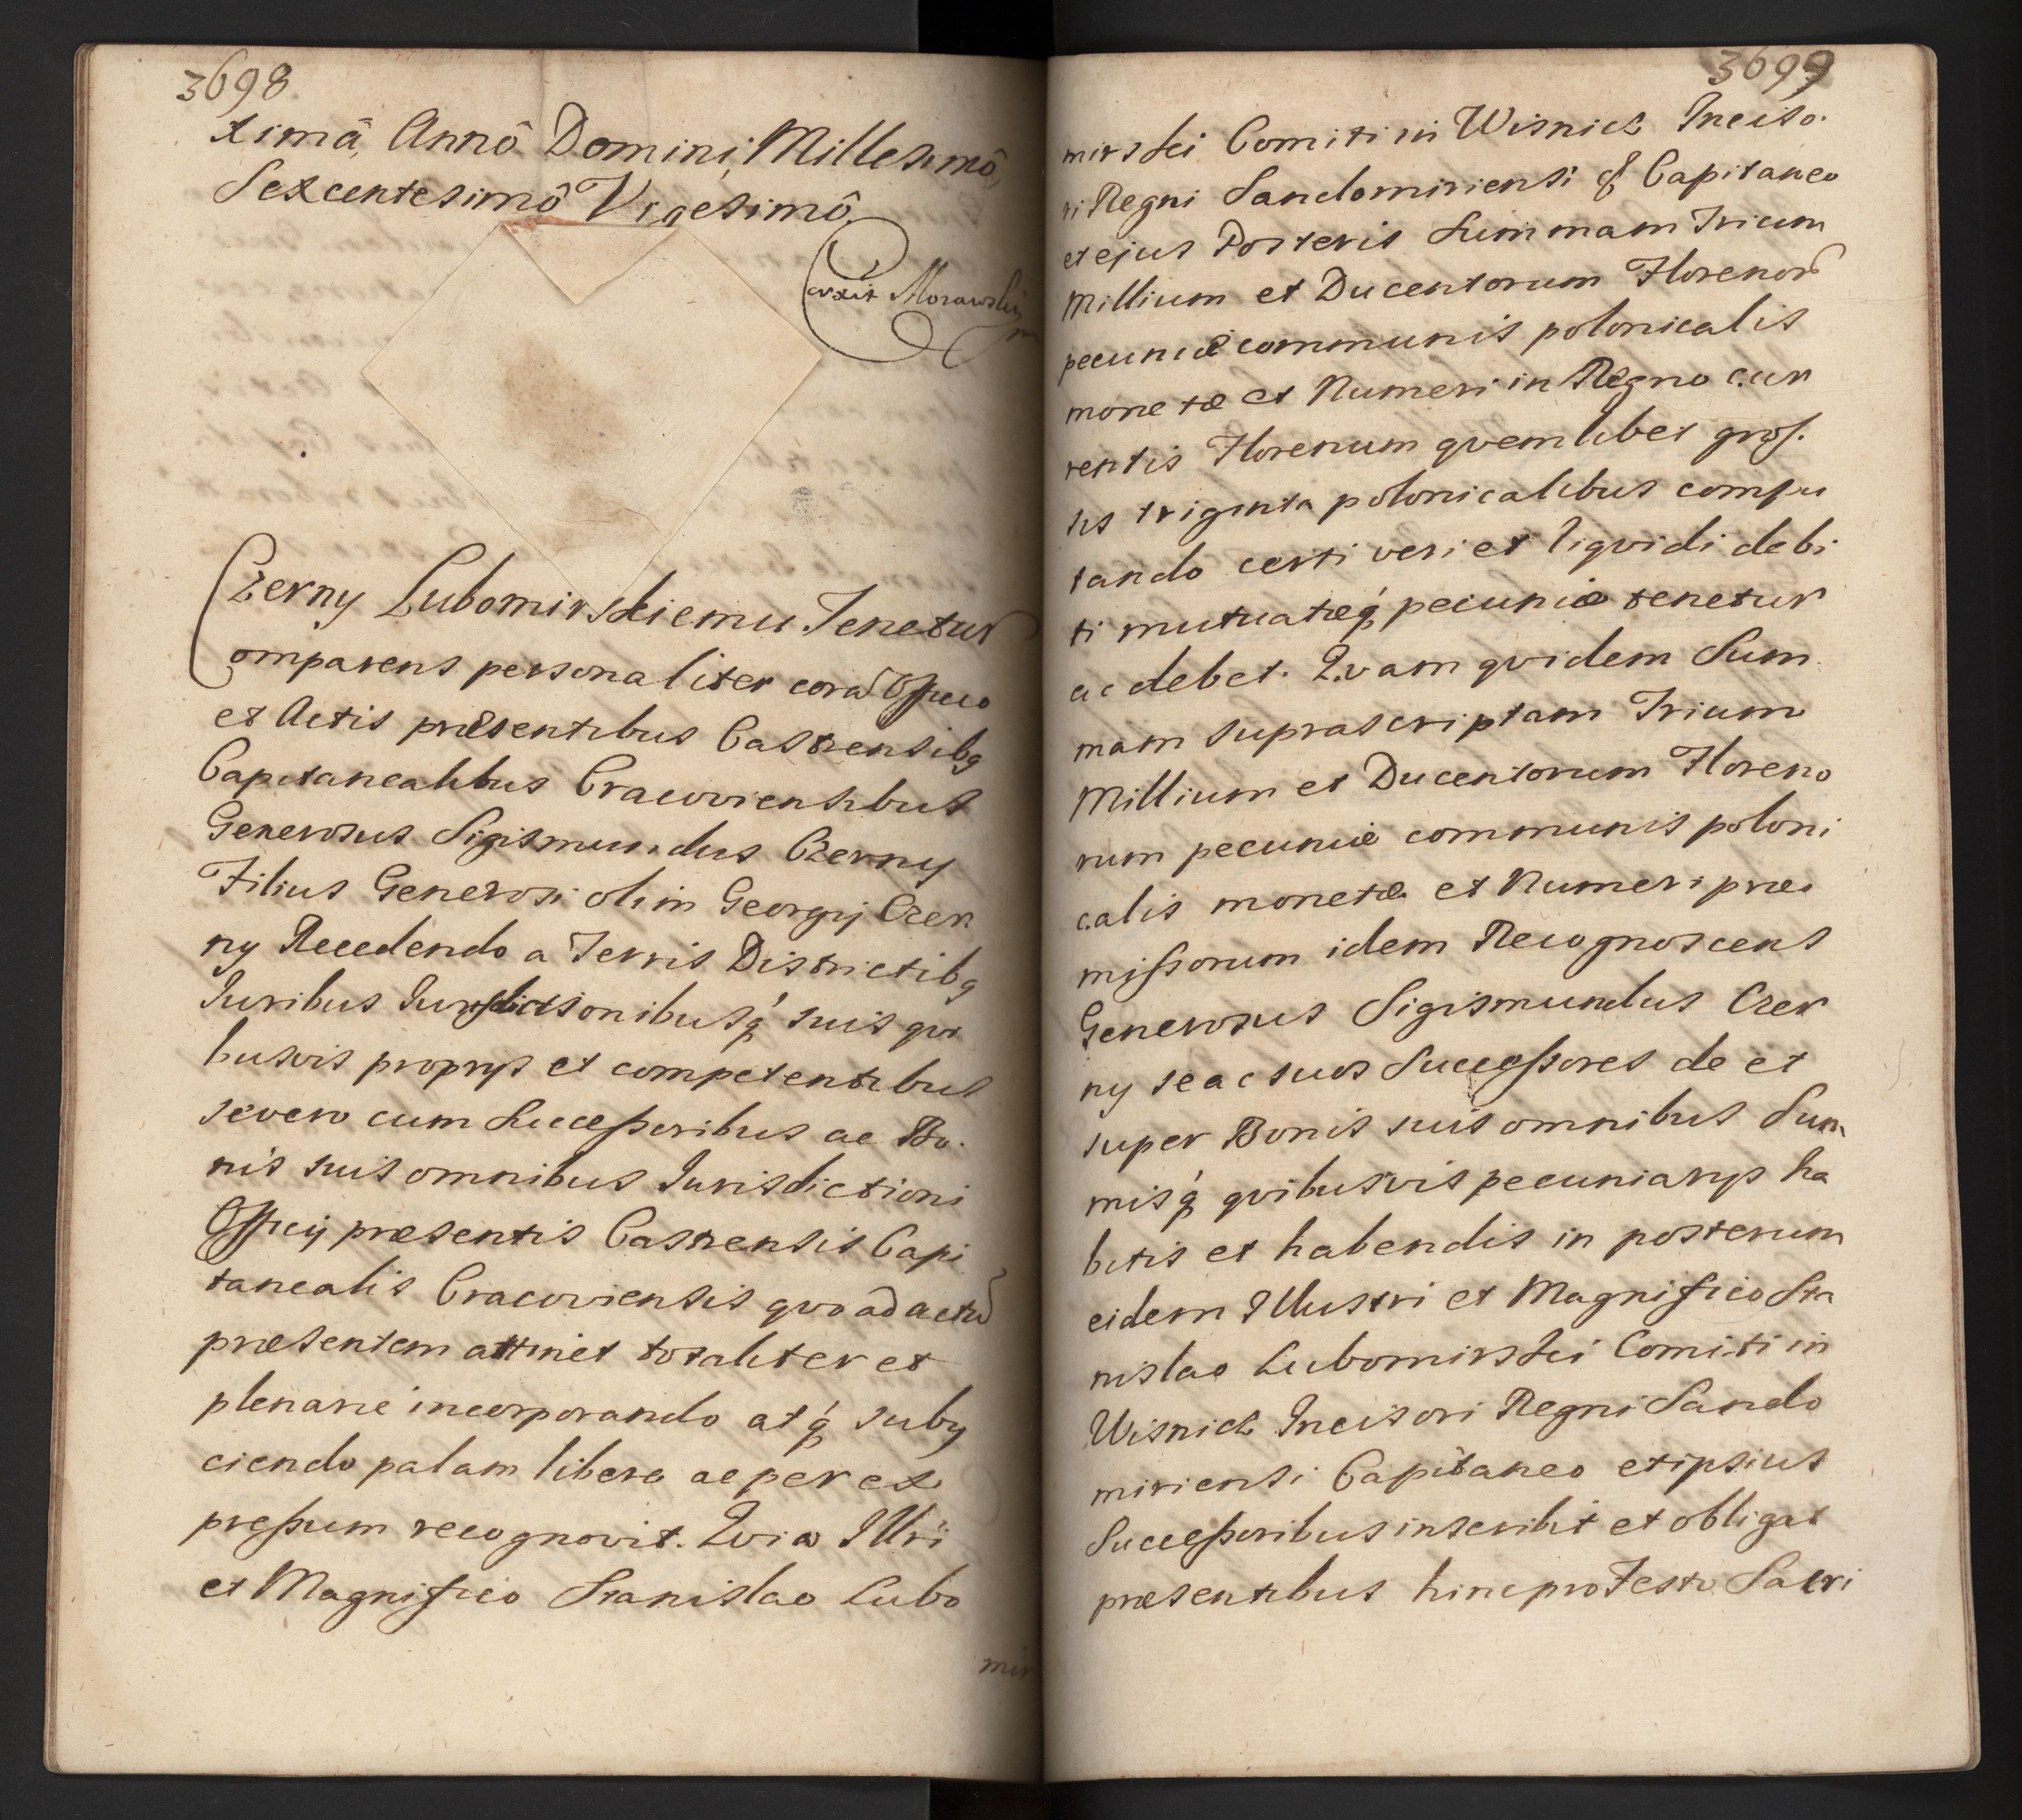 3698
ximâ, Annô Domini, Millesimô,
Sexcentesimô Vigesimô
Morawski
Czerny Lubomirskiemu Tenetur
Comparens personaliter corã Officio
et Actis præsentibus Castrensibq
Capitanealibus Cracoviensibus
Generosus Sigismundus Czerny
Filius Generosi olim Georgij Czer
ny Recedendo a Terris Districtibq
Iuribus Iurisdictionibusq́ suis qvi
busvis proprijs et competentibus
se vero cum Successoribus ac Bo
nis suis omnibus Iurisdictioni
Officij præsentis Castrensis Capi
tanealis Cracoviensis qvo ad actũ
præsentem attinet totaliter et
plenarie incorporando atq́ subij
ciendo palam libere ac per ex
pressum recognovit. Qvia Illri
et Magnifico Stanislao Lubo
mir
3699
mirski Comiti in Wisnick Inciso
ri Regni Sandomiriensi & Capitaneo
et ejus Posteris Summam Trium
Millium et Ducentorum Florenorũ
pecuniæ communis polonicalis
monetæ et Numeri in Regno cur
rentis Florenum qvemlibet gros
sis triginta polonicalibus compu
tando certi veri et liqvidi debi
ti mutuatæq́ pecuniæ tenetur
ac debet. Qvam qvidem Sum
mam suprascriptam Trium
Millium et Ducentorum Floreno
rum pecuniæ communis poloni
calis monetæ et Numeri præ
missorum idem Recognoscens
Generosus Sigismundus Czer
ny se ac suos Successores de et
super Bonis suis omnibus Sum
misq́ qvibusvis pecuniarijs ha
bitis et habendis in posterum
eidem Illustri et Magnifico Sta
nislao Lubomirski Comiti in
Wisnick Incisori Regni Sando
miriensi Capitaneo et ipsius
Successoribus inscribit et obligat
præsentibus hinc pro Festo Sacri